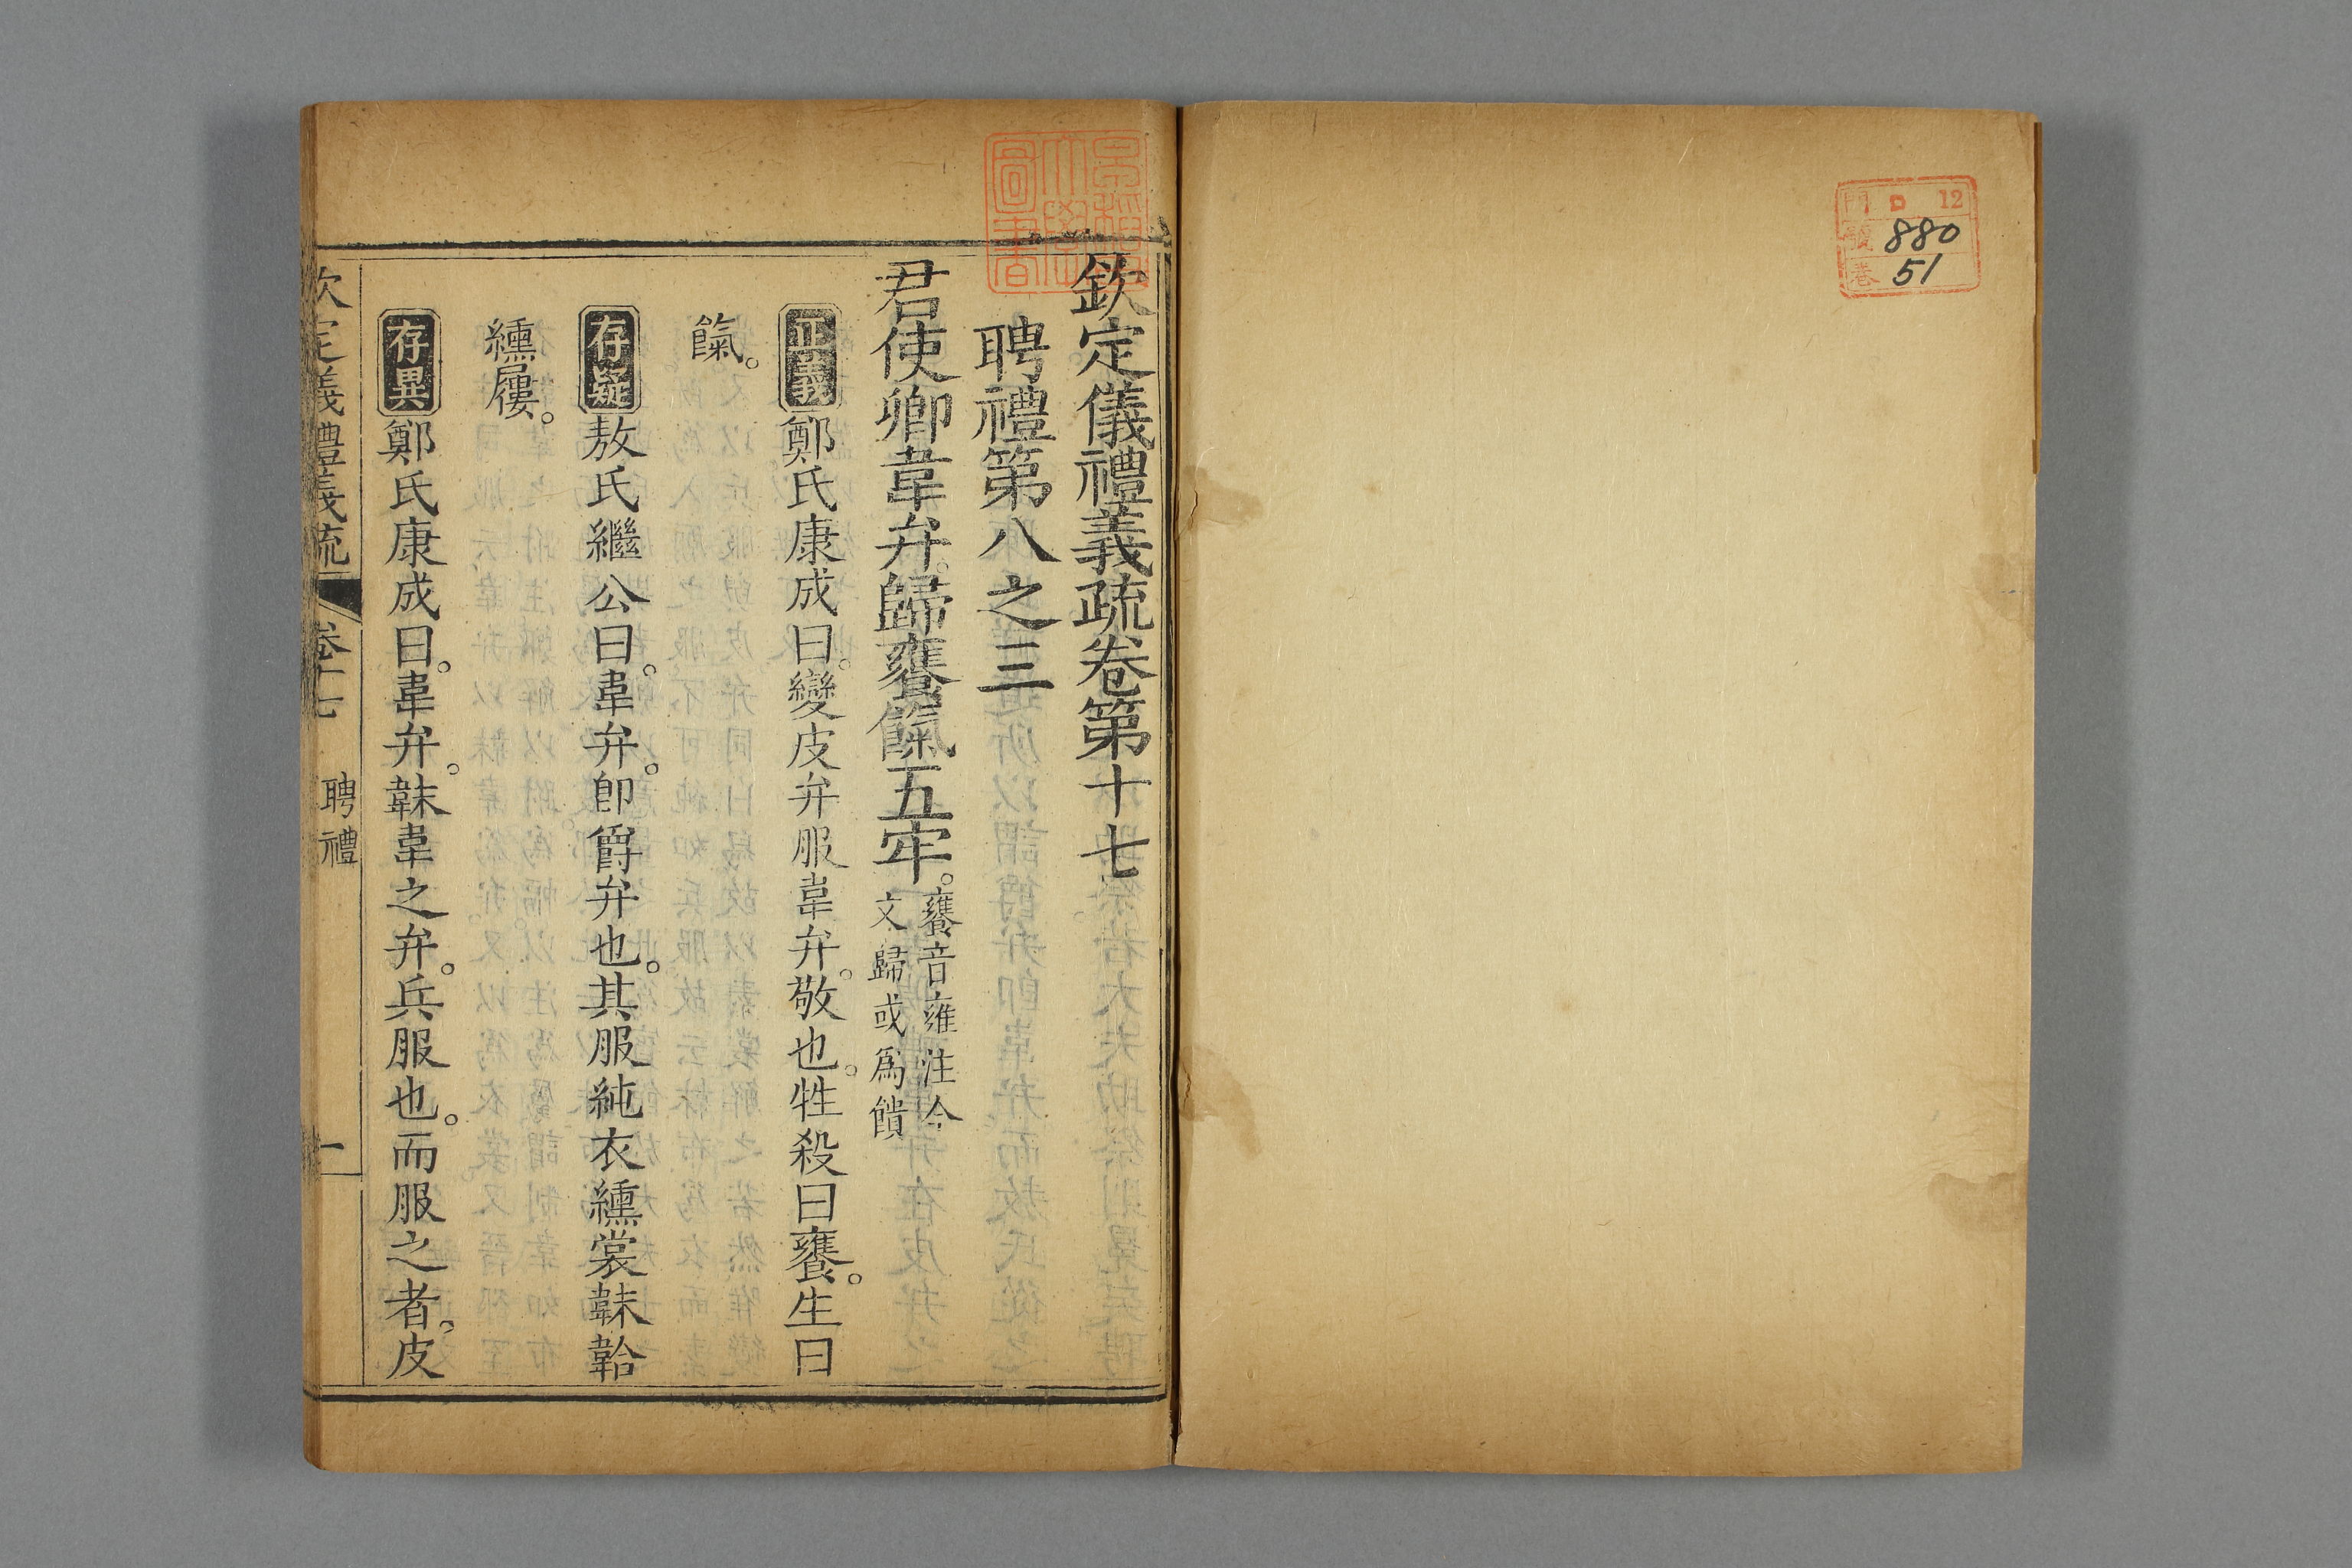 門 ロ 12
號 880
巷 51
早稲田大學圖書
欽定儀禮義疏卷第十七
聘禮第八之三
君使卿韋弁。歸饔餼五牢。饔音雍注今
文歸或爲饋
正義鄭氏康成曰。變皮弁服韋弁。敬也。牲殺曰饔。生曰
餼。
存疑敖氏繼公曰。韋弁。卽爵弁也。其服純衣纁裳韎韐
纁屨。
存異鄭氏康成曰。韋弁。韎韋之弁。兵服也。而服之者。皮
欽定義禮義疏 卷十七 聘禮 一